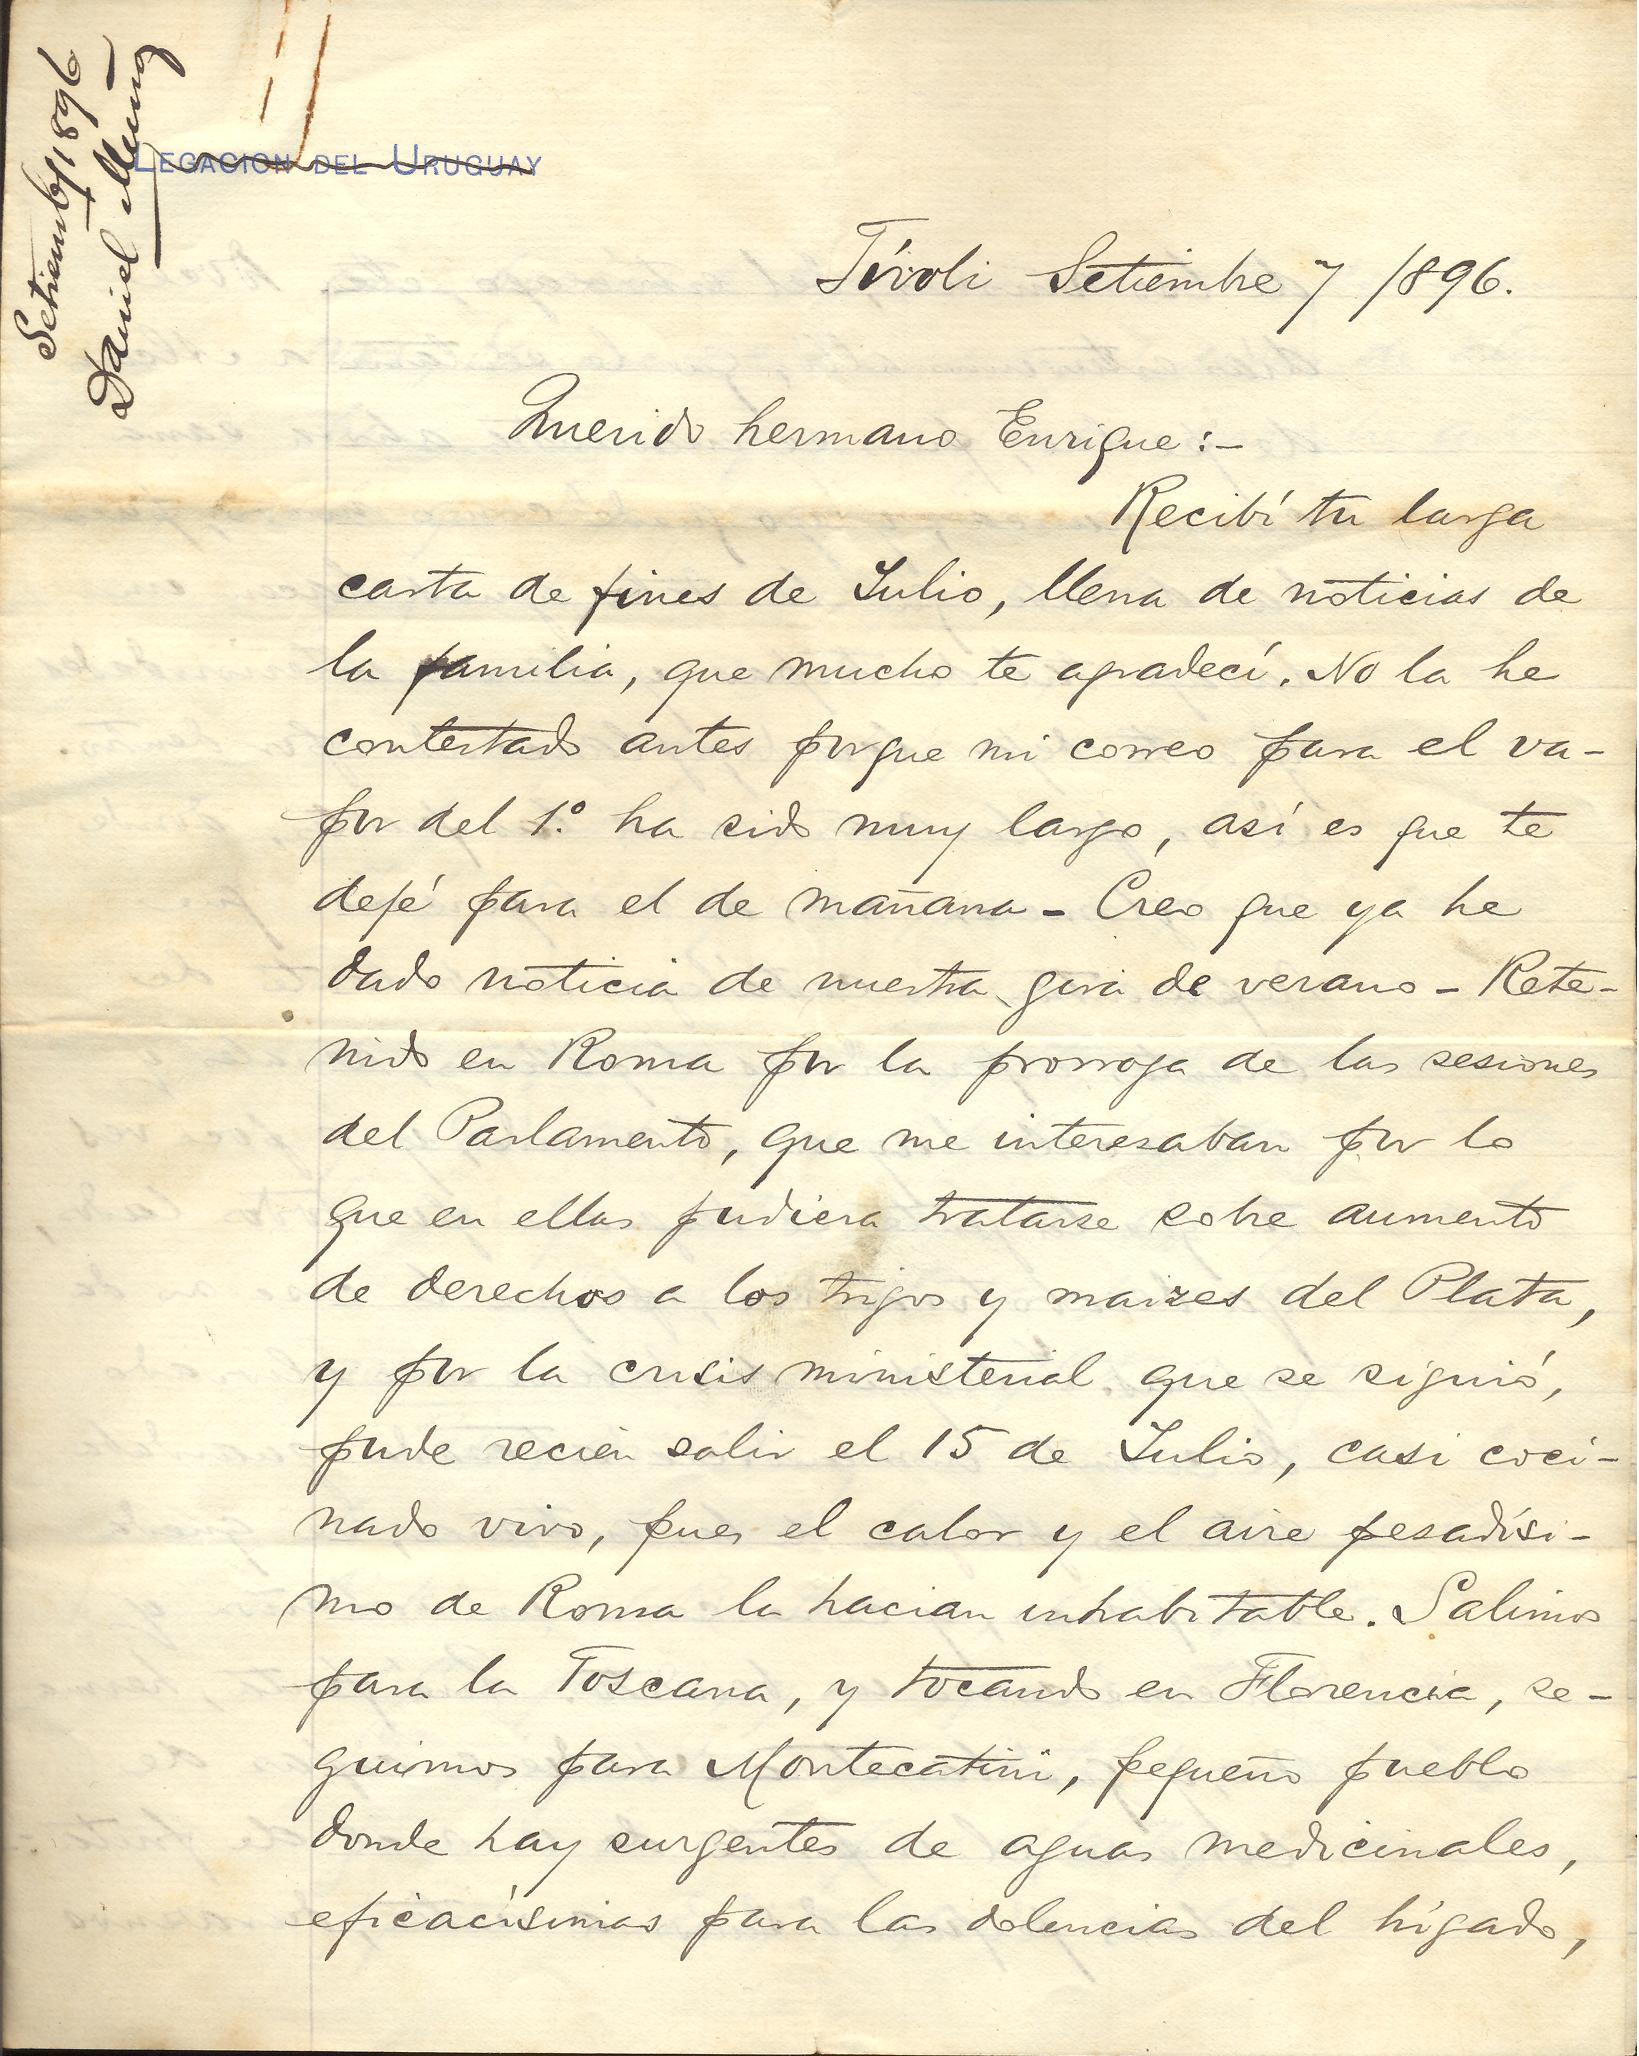 Setiemb 7/1896
Daniel Muñoz
LEGACION DEL URUGUAY
Tívoli Setiembre 7 /896.
Querido hermano Enrique:-
Recibí tu larga
carta de fines de Julio, llena de noticias de
la familia, que mucho te agradecí. No la he
contestado antes porque mi correo para el va-
por del 1.º ha sido muy largo, así es que te
dejé para el de mañana - Creo que ya he
dado noticia de nuestra gira de verano - Rete-
nido en Roma por la prorroga de las sesiones
del Parlamento, que me interesaban por lo
que en ellas pudiera tratarse sobre aumento
de derechos a los trigos y maizes del Plata,
y por la crisis ministerial que se siguió,
pude recien salir el 15 de Julio, casi coci-
nado vivo, pues el calor y el aire pesadísi-
mo de Roma la hacian inhabitable. Salimos
para la Toscana, y tocando en Florencia, se-
guimos para Montecatini, pequeño pueblo
donde hay surgentes de aguas medicinales,
eficacísimas para las dolencias del hígado,